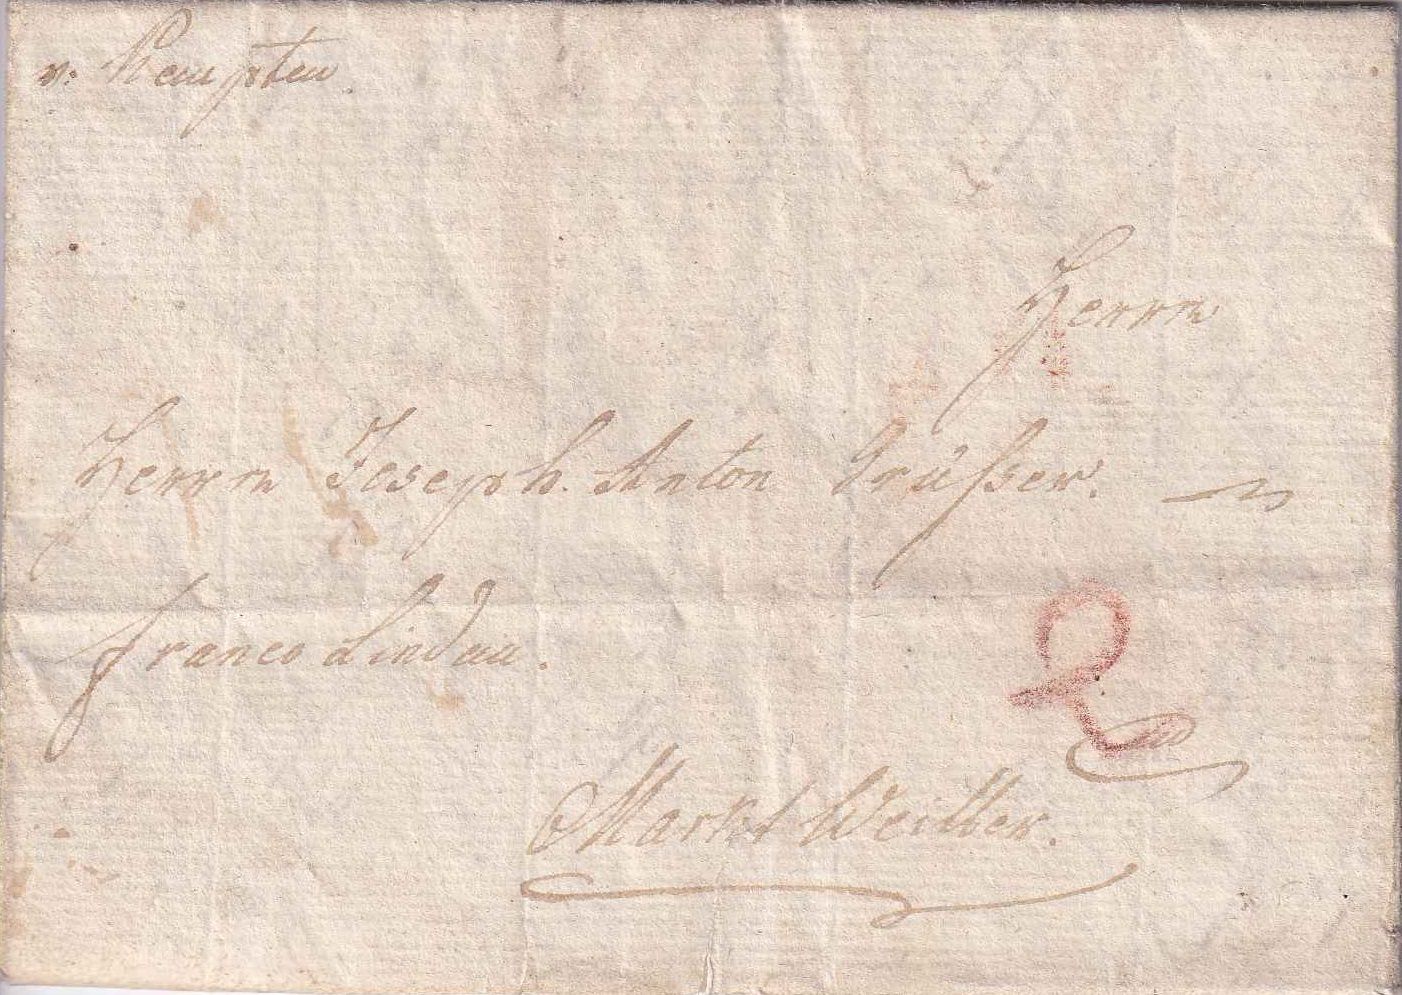 v: Kempten
Herrn
Herrn Joseph. Anton Grüßer.
franco Lindau.
Markt Weiller.